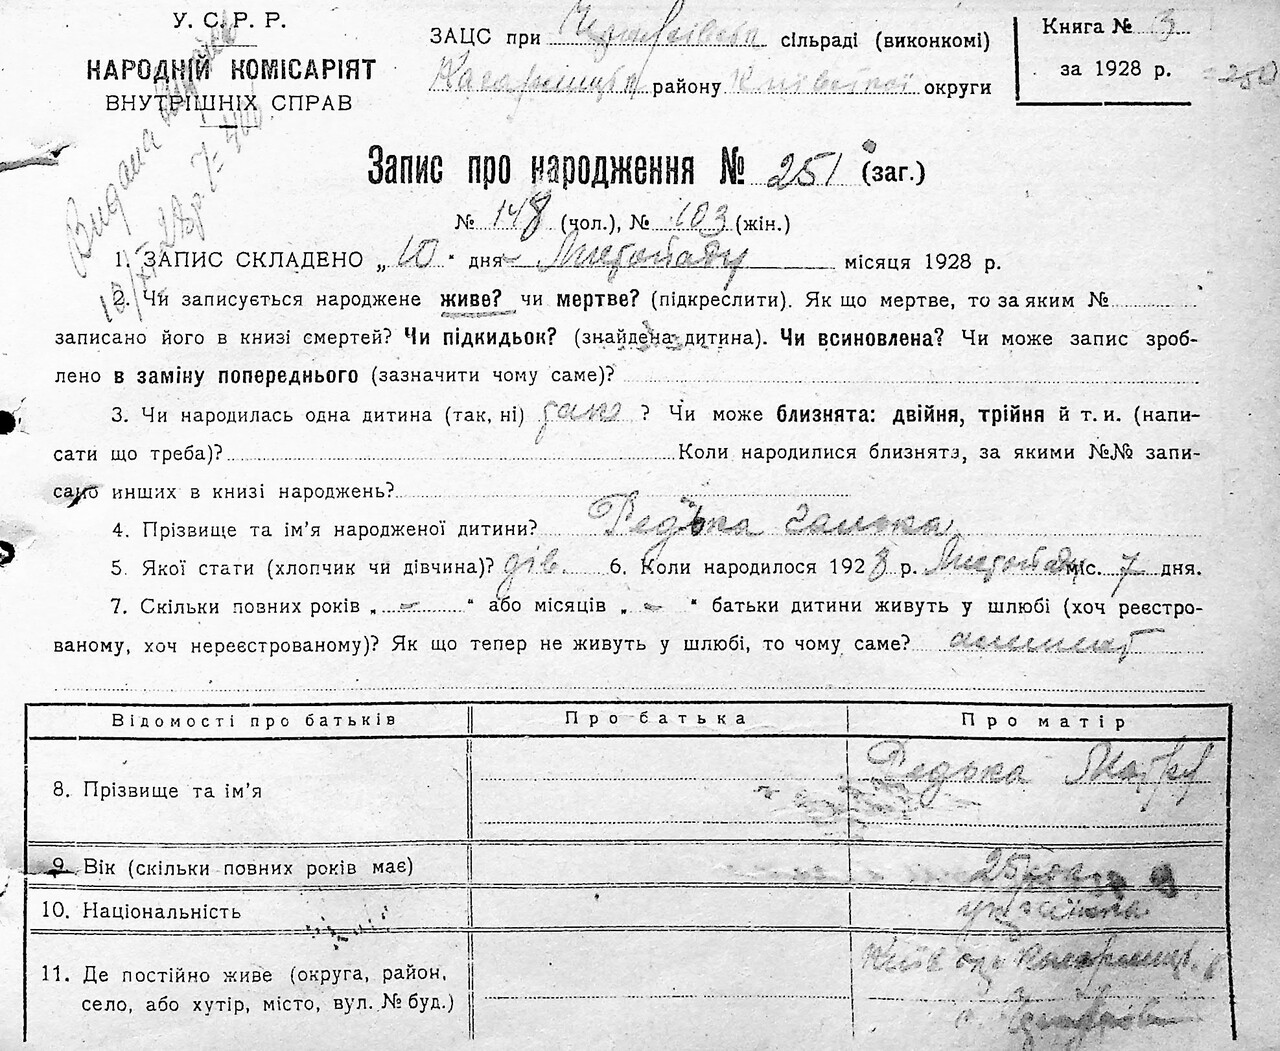 У. С. Р. Р.
НАРОДНІЙ КОМІСАРІЯТ
ВНУТРІШНІХ СПРАВ
ЗАЦС при сільраді (виконкомі)
району Київської округи
Книга № 3
за 1928 р.
Видана
Запис про народження № 251 (заг.)
№ 148 (чол.), № 103 (жін.)
1. ЗАПИС СКЛАДЕНО „ 10 " дня Листопаду місяця 1928 р.
2. Чи записується народжене живе? чи мертве? (підкреслити). Як що мертве, то за яким №
записано його в книзі смертей? Чи підкидьок? (знайдена дитина). Чи всиновлена? Чи може запис зроб-
лено в заміну попереднього (зазначити чому саме)?
3. Чи народилась одна дитина (так, ні) ? Чи може близнята: двійня, трійня й т. и. (напи-
сати що треба)? Коли народилися близнята, за якими №№ запи-
сано инших в книзі народжень?
4. Прізвище та ім'я народженої дитини? Редька Галька
5. Якої стати (хлопчик чи дівчина)? дів. 6. Коли народилося 1928 р. Листопаду міс. 7 дня.
7. Скільки повних років „ - " або місяців „ - " батьки дитини живуть у шлюбі (хоч реєстро-
ваному, хоч нереєстрованому)? Як що тепер не живуть у шлюбі, то чому саме?
Відомості про батьків Про батька Про матір
8. Прізвище та ім'я Редька
9. Вік (скільки повних років має) 25
10. Національність українка
11. Де постійно живе (округа, район,
село, або хутір, місто, вул. № буд.)